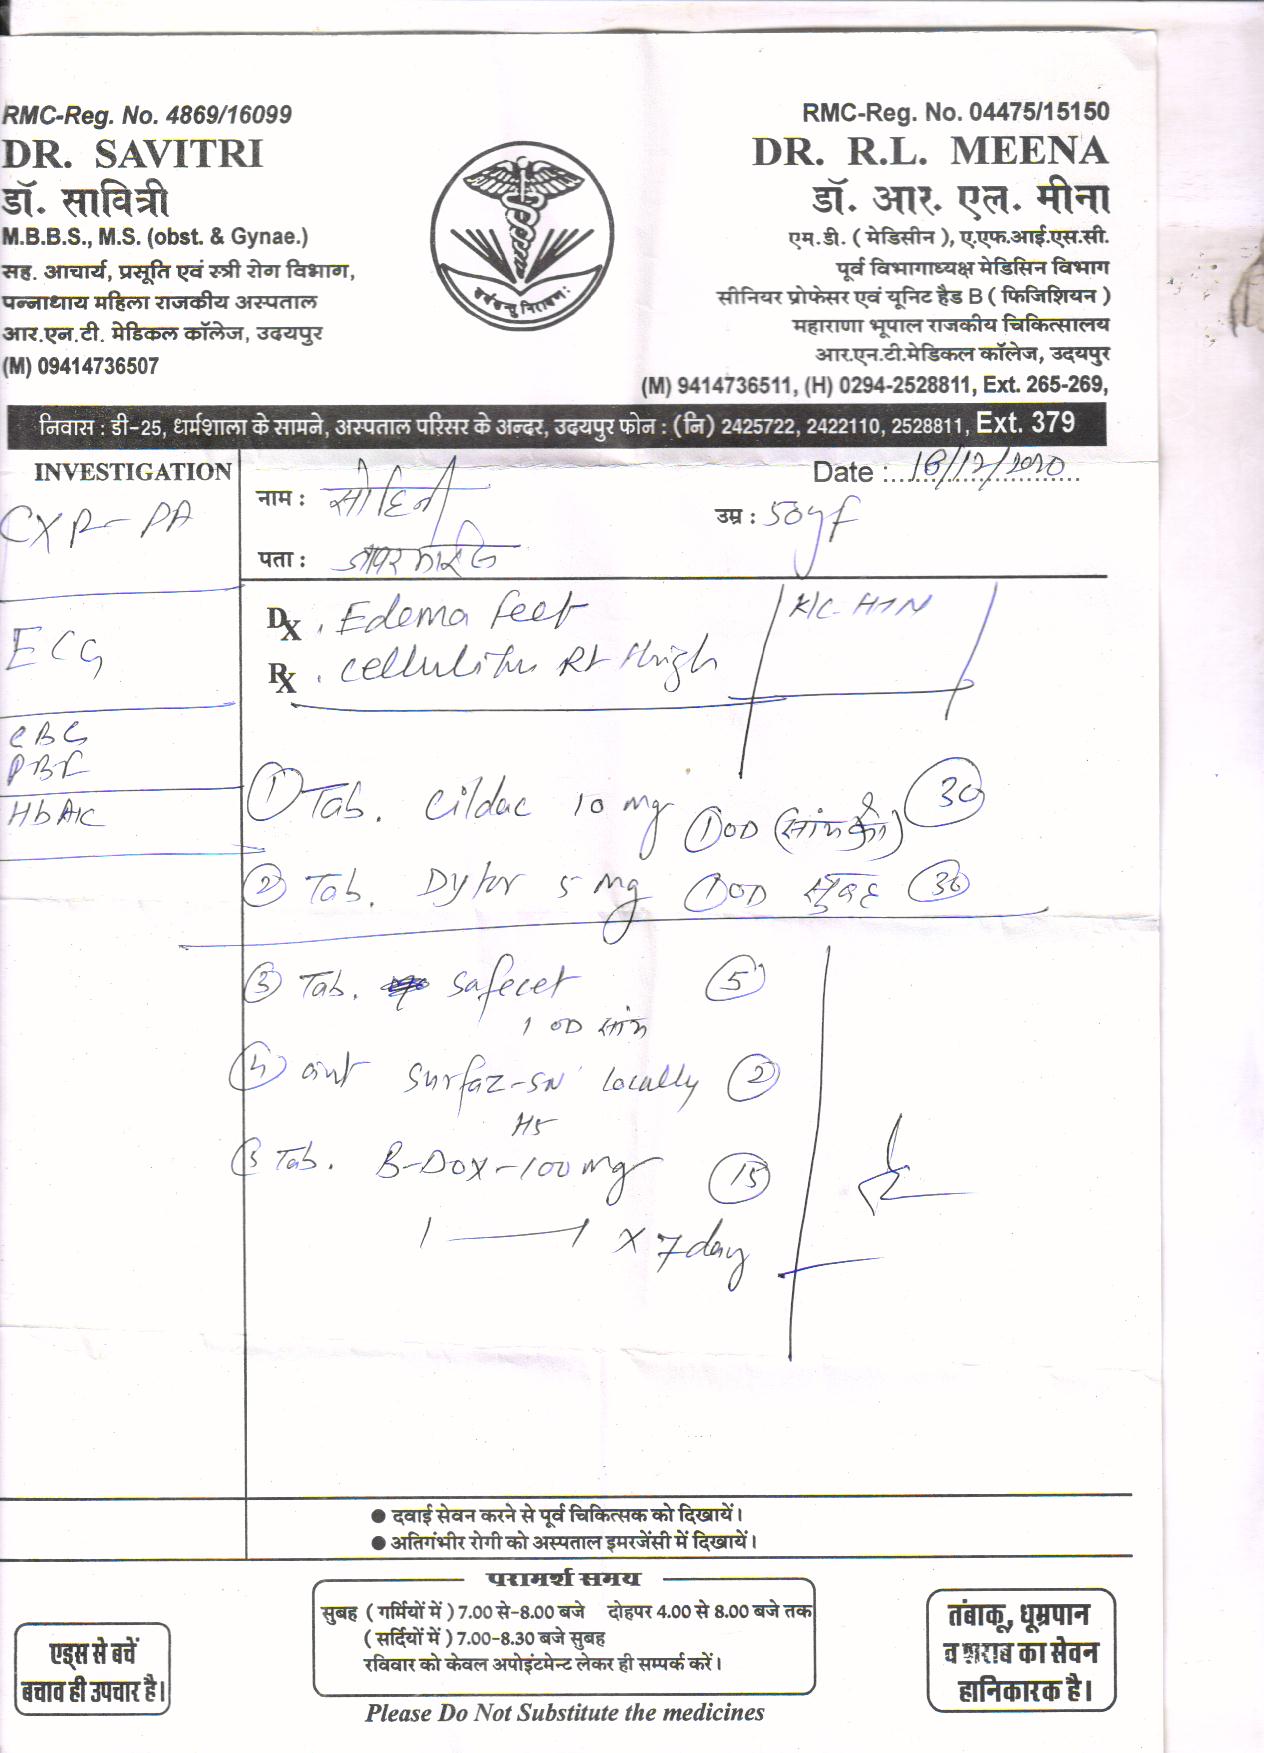 RMC-Reg. No. 4869/16099
DR. SAVITRI
डॉ. सावित्री
M.B.B.S., M.S. (obst. & Gynae.)
सह. आचार्य, प्रसूति एवं स्त्री रोग विभाग,
पन्नाधाय महिला राजकीय अस्पताल
आर.एन.टी. मेडिकल कॉलेज, उदयपुर
(M) 09414736507
RMC-Reg. No. 04475/15150
DR. R.L. MEENA
डॉ. आर. एल. मीना
एम.डी. ( मेडिसीन ), ए.एफ.आई.एस.सी.
पूर्व विभागाध्यक्ष मेडिसिन विभाग
सीनियर प्रोफेसर एवं यूनिट हैड B ( फिजिशियन )
महाराणा भूपाल राजकीय चिकित्सालय
आर.एन.टी.मेडिकल कॉलेज, उदयपुर
(M) 9414736511, (H) 0294-2528811, Ext. 265-269,
निवास : डी-25, धर्मशाला के सामने, अस्पताल परिसर के अन्दर, उदयपुर फोन : (नि) 2425722, 2422110, 2528811, Ext. 379
INVESTIGATION
CXR-PA
ECG
CBC
PBF
HbA1C
Date : /12/2020
नाम :
उम्र : 50yf
पता :
Dx . Edema feet
K/C- HTN
Rx . Cellulitis Rt thigh
① Tab. Cildac 10 mg ① OD (सांय को) 30
② Tab. Dytor 5 mg ① OD सुबह 30
③ Tab. Safecet 5
1 OD सांय
④ oint Surfaz-SN locally 2
HS
5 Tab. B-DOX-100 mg 15
1 — 1 x 7 day
● दवाई सेवन करने से पूर्व चिकित्सक को दिखायें।
● अतिगंभीर रोगी को अस्पताल इमरजेंसी में दिखायें।
परामर्श समय
सुबह ( गर्मियों में ) 7.00 से-8.00 बजे दोहपर 4.00 से 8.00 बजे तक
( सर्दियों में ) 7.00-8.30 बजे सुबह
रविवार को केवल अपोइंटमेन्ट लेकर ही सम्पर्क करें।
Please Do Not Substitute the medicines
एड्स से बचें
बचाव ही उपचार है।
तंबाकू, धूम्रपान
व शराब का सेवन
हानिकारक है।